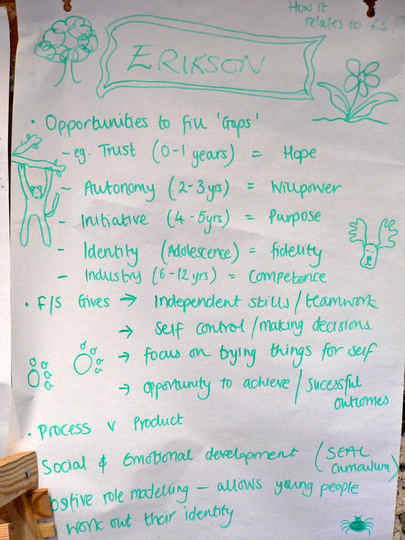 How it
relates to F.S.
ERIKSON
• Opportunities to fill 'Gaps'
- eg. Trust (0-1 years) = Hope
- Autonomy (2-3 yrs) = Willpower
- Initiative (4-5yrs) = Purpose
- Identity (Adolescence) = fidelity
- Industry (6-12 yrs) = Competence
• F/S Gives → Independent skills/teamwork
→ Self control/making decisions
→ focus on trying things for self
→ opportunity to achieve/Sucessful
outcomes
• Process v Product
Social & Emotional development (SEAL
Curriculum)
ositive role modelling - allows young people
work out their identity